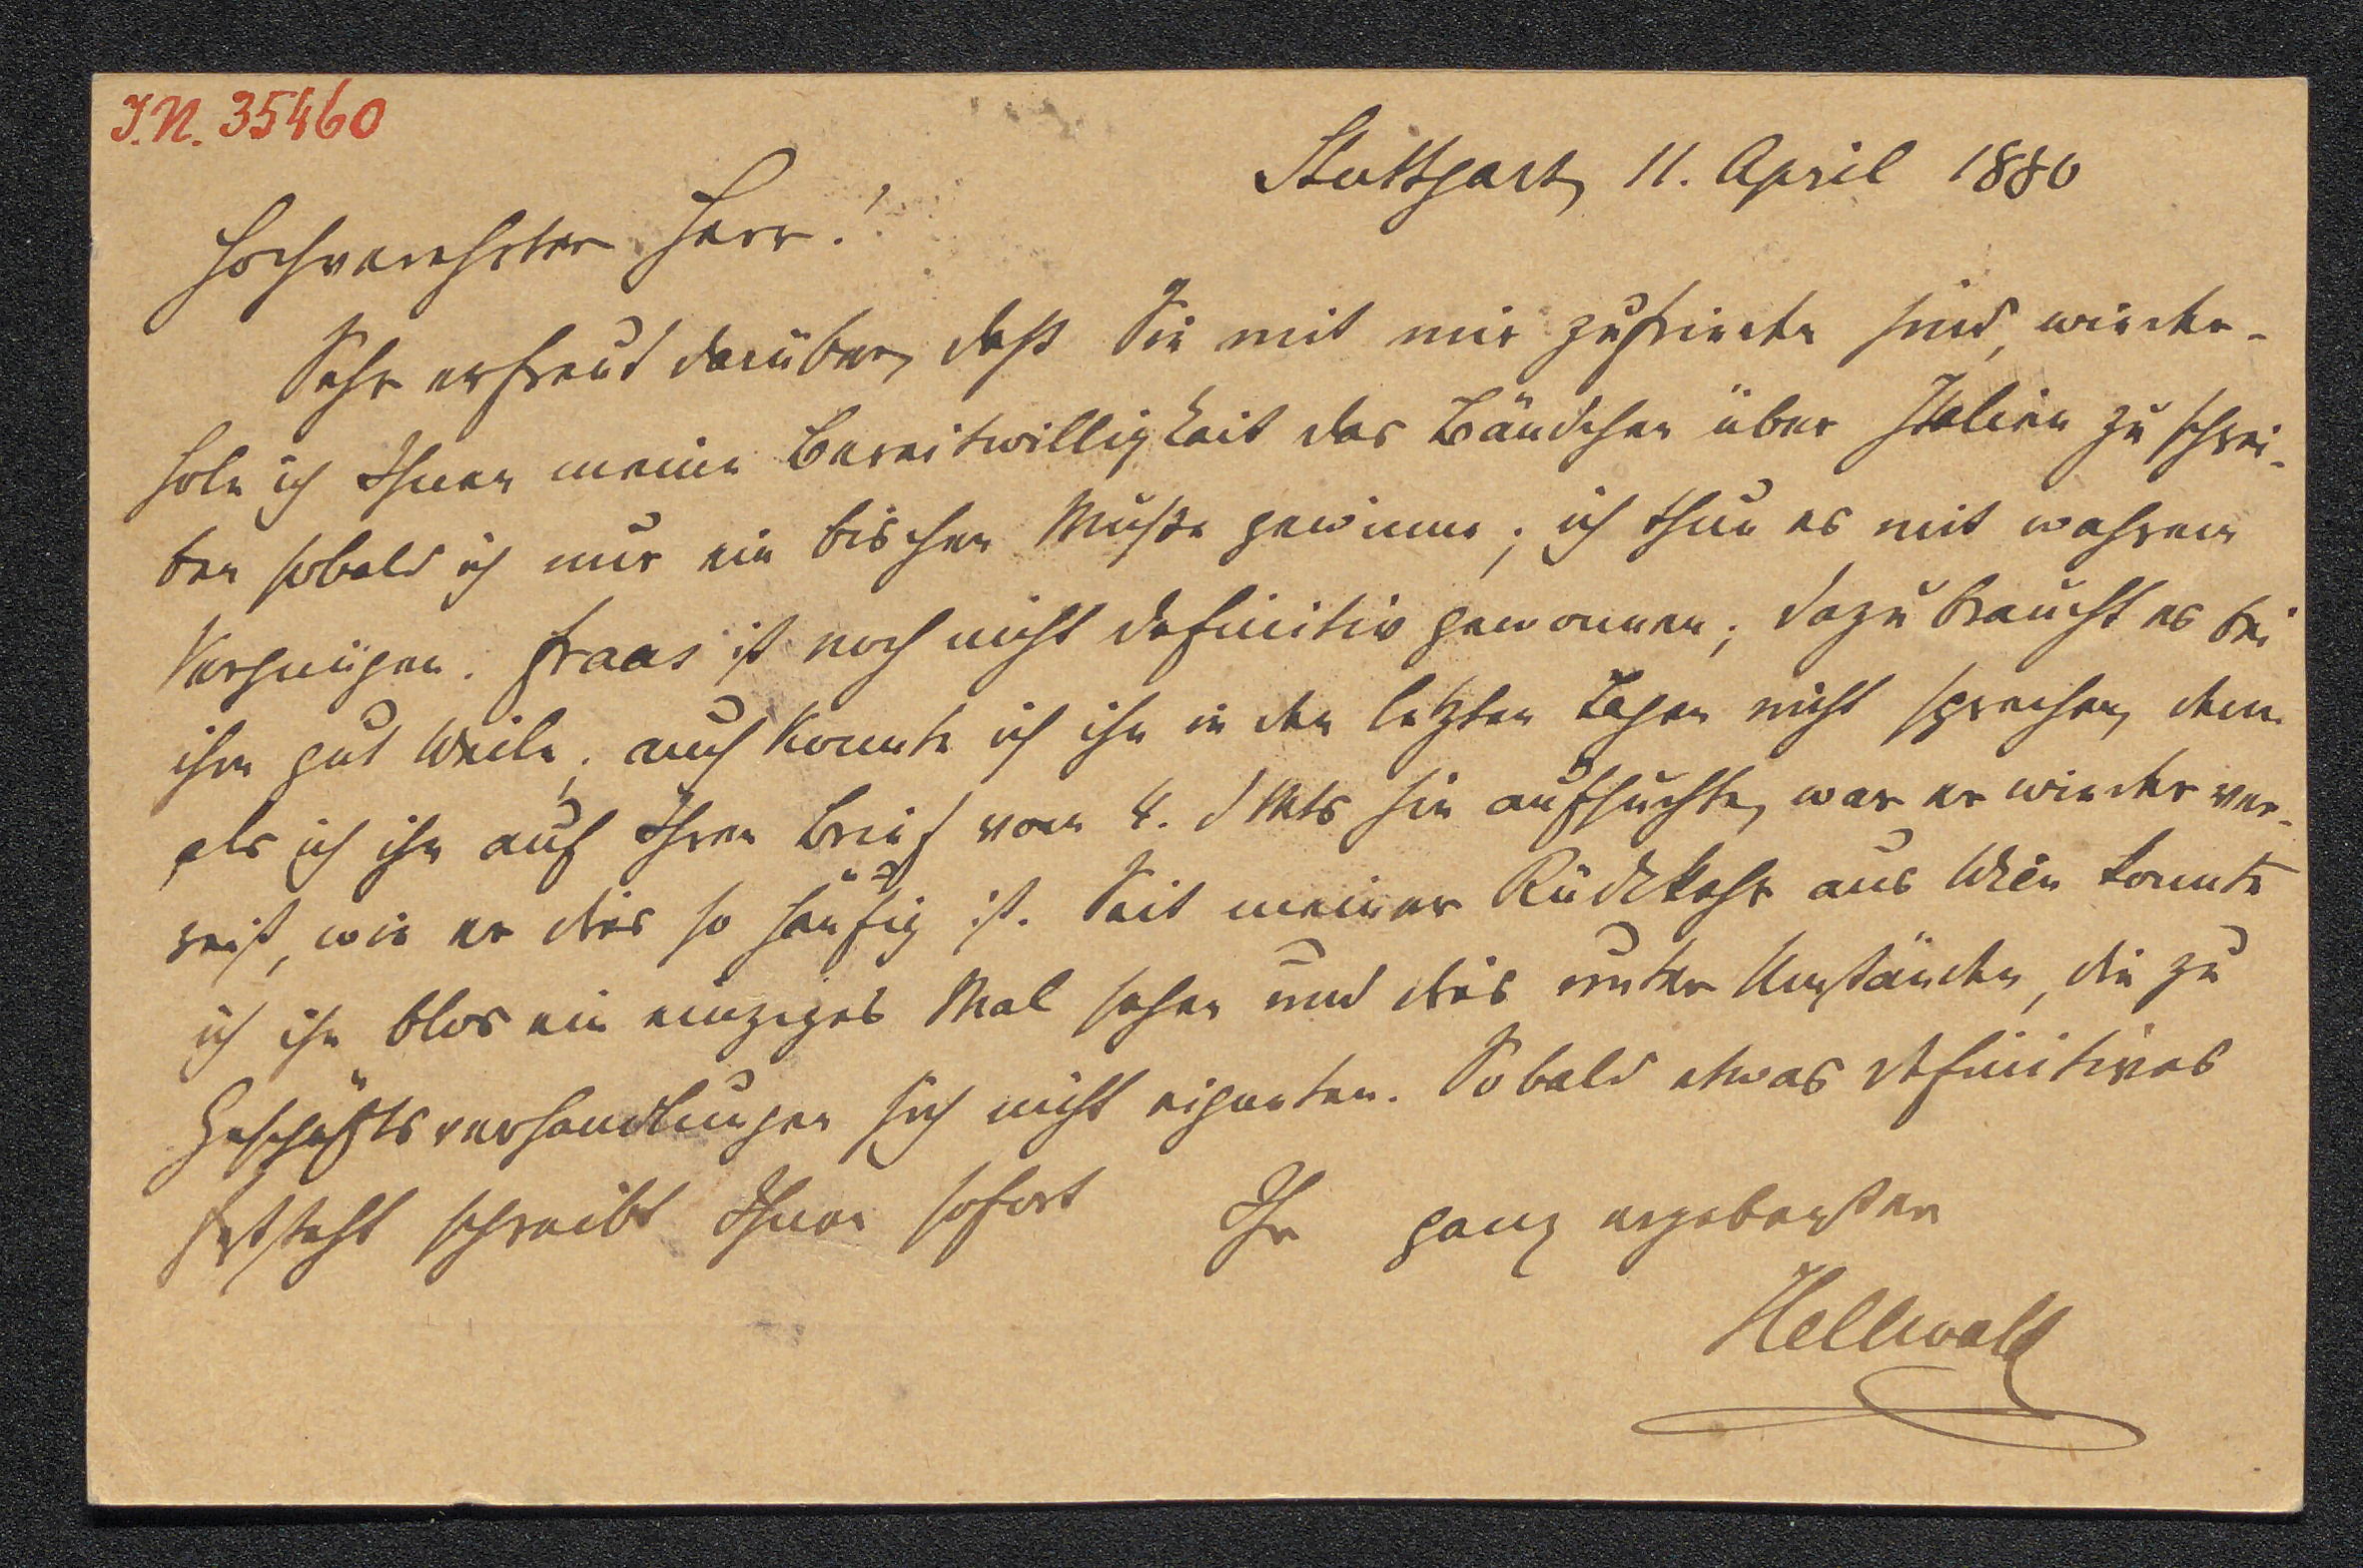 J.N. 35460
Stuttgart, 11. April 1880
Hochverehrter Herr!
Sehr erfreut darüber, daß Sie mit mir zufrieden sind, wieder-
hole ich Ihnen meine Bereitwilligkeit das Bändchen über Italien zu schrei-
ben sobald ich nur ein bischen Muße gewinne; ich thue es mit wahrem
Vergnügen. Fraas ist noch nicht definitiv gewonnen; dazu braucht es bei
ihm gut Weile; auch konnte ich ihn in den letzten Tagen nicht sprechen, denn
als ich ihn auf Ihren Brief vom 4. d Mts hin aufsuchte, war er wieder ver-
reist, wie er dies so häufig ist. Seit meiner Rückkehr aus Wien konnte
ich ihn blos ein einziges Mal sehen und dies unter Umständen, die zu
Geschäftsverhandlungen sich nicht eigneten. Sobald etwas definitives
feststeht schreibt Ihnen sofort Ihr ganz ergebenster
Hellwald